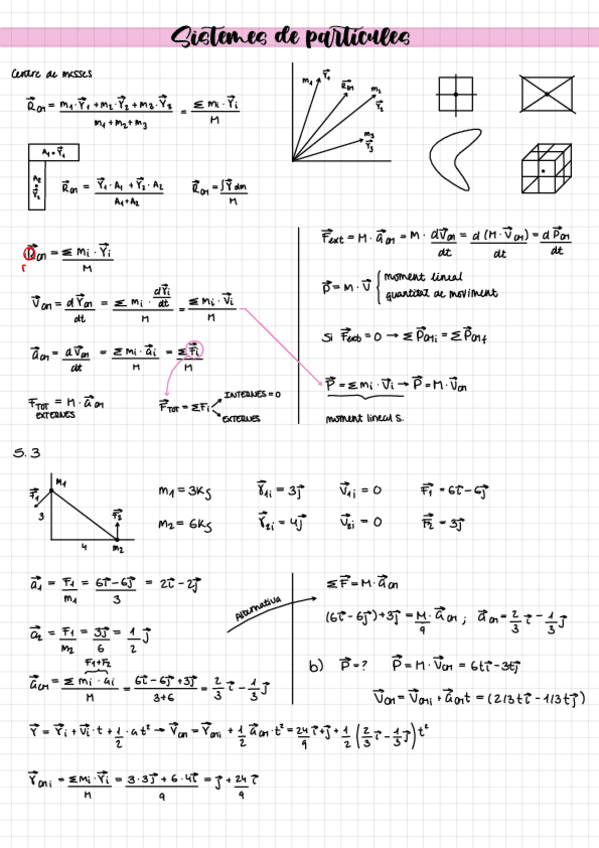 Sistemes de partícules
Centre de masses
R⃗cm = m1·r⃗1+m2·r⃗2+m3·r⃗3 / m1+m2+m3 = Σ mi·r⃗i / M
m1 r⃗1
R⃗cm
m2 r⃗2
m3 r⃗3
A1·r⃗1
A2 r⃗2
R⃗cm = r⃗1·A1 + r⃗2·A2 / A1+A2
R⃗cm = ∫r⃗ dm / M
R⃗cm = Σ mi·r⃗i / M
r
V⃗cm = d r⃗cm / dt = Σ mi · dr⃗i/dt / M = Σ mi·v⃗i / M
a⃗cm = d v⃗cm / dt = Σ mi·a⃗i / M = Σ F⃗i / M
FTOT EXTERNES = M·a⃗cm
F⃗TOT = ΣFi
INTERNES = 0
EXTERNES
F⃗ext = M·a⃗cm = M· dv⃗cm/dt = d(M·v⃗cm)/dt = d p⃗cm/dt
p⃗ = M·v⃗
moment lineal
quantitat de moviment
Si F⃗ext = 0 → Σ p⃗cmi = Σ p⃗cmf
P⃗ = Σmi·v⃗i → P⃗ = M·v⃗cm
moment lineal s.
5.3
m1
F⃗1
3
F⃗2
4
m2
m1 = 3Kg
r⃗1i = 3j⃗
v⃗1i = 0
F⃗1 = 6i⃗ - 6j⃗
m2 = 6Kg
r⃗2i = 4j⃗
v⃗2i = 0
F⃗2 = 3j⃗
a⃗1 = F1/m1 = 6i⃗-6j⃗ / 3 = 2i⃗ - 2j⃗
a⃗2 = F1/m2 = 3j⃗/6 = 1/2 j⃗
F1+F2
a⃗cm = Σ mi·ai / M = 6i⃗-6j⃗+3j⃗ / 3+6 = 2/3 i⃗ - 1/3 j⃗
Alternativa
ΣF⃗ = M·a⃗cm
(6i⃗-6j⃗)+3j⃗ = M/9 · a⃗cm ; a⃗cm = 2/3 i⃗ - 1/3 j⃗
b) P⃗=? P⃗ = M·v⃗cm = 6ti⃗ - 3tj⃗
v⃗cm = v⃗cmi + a⃗cm t = (2/3ti⃗ - 1/3tj⃗)
r⃗ = r⃗i + v⃗i·t + 1/2 · at² → r⃗cm = r⃗cmi + 1/2 a⃗cm·t² = 24/9 i⃗ + j⃗ + 1/2 (2/3 i⃗ - 1/3 j⃗) t²
r⃗cmi = Σmi·r⃗i / M = 3·3j⃗ + 6·4i⃗ / 9 = j⃗ + 24/9 i⃗